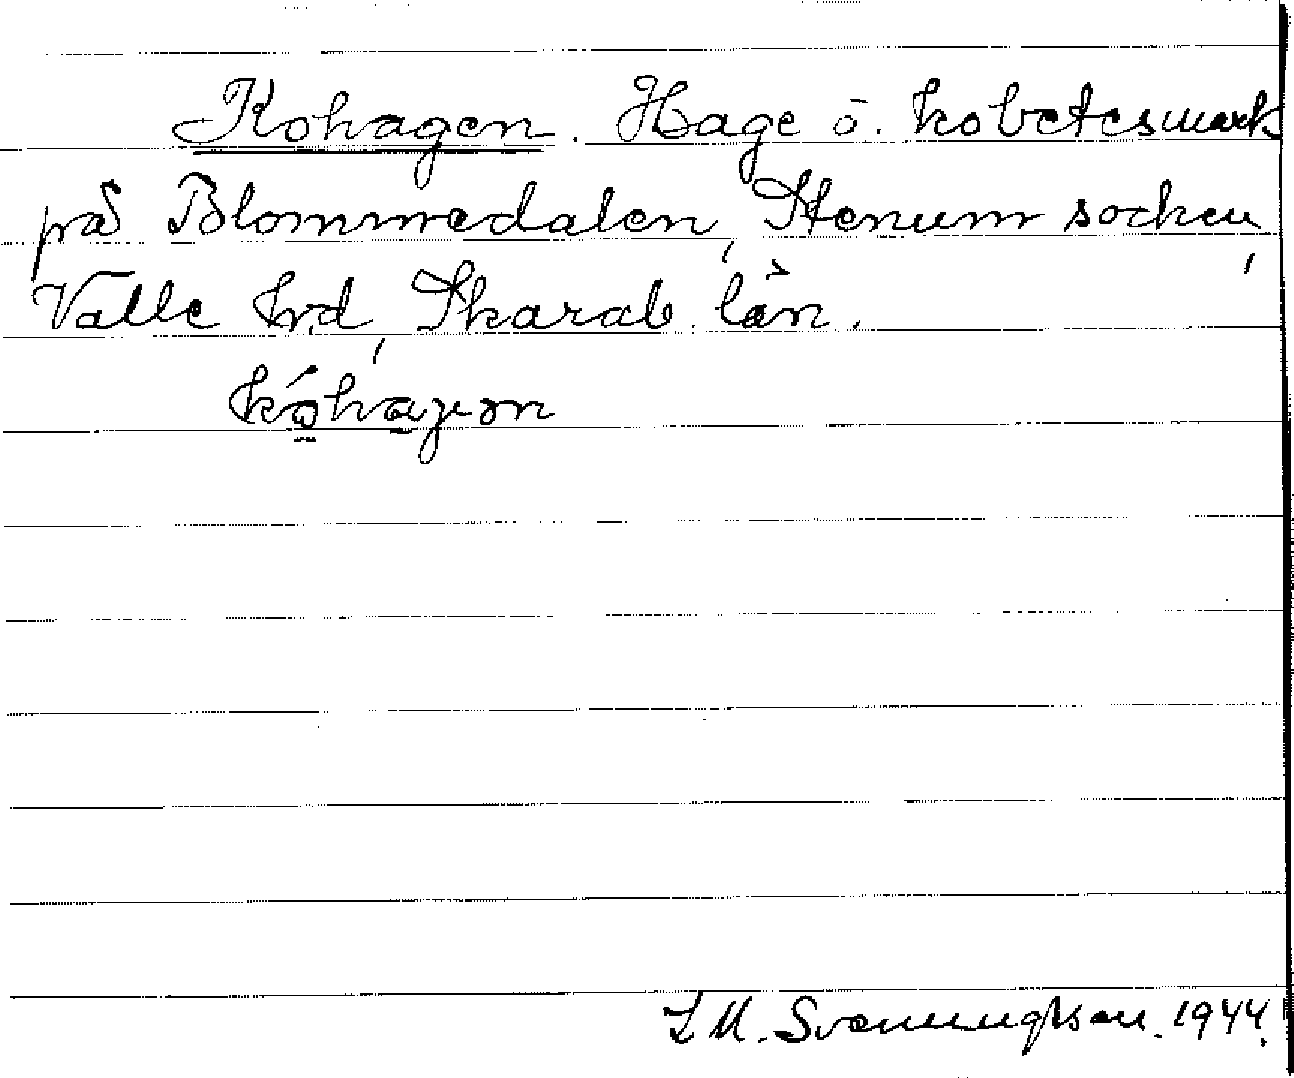 Kohagen. Hage o. kobetesmark
på Blommedalen, Stenum socken,
Valle hrd, Skarab. län.
kóhágən
L M. Svenungsson. 1944.